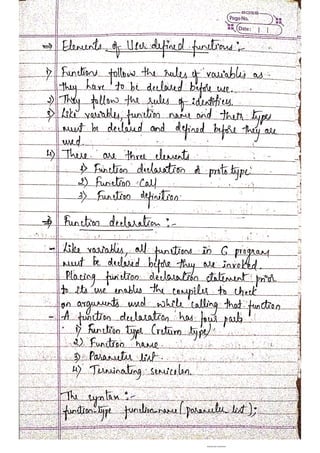 Page No.
Date: | |
⇒ Elements of User defined functions :-
1) Functions follow the rules of variables as
they have to be declared before use.
2) They follow the rules of identifiers.
3) Like variables, function name and their types
must be declared and defined before they are
used.
4) There are three elements
1) Function declaration & prototype
2) Function Call
3) Function definition
⇒ Function declaration :-
- Like variables, all functions in C program
must be declared before they are invoked.
Placing function declaration statement prior
to its use enables the compiler to check
on arguments used while calling that function
- A function declaration has four parts
1) Function type (return type)
2) Function name
3) Parameter list
4) Terminating semicolon.
The syntax :-
function-type function-name (parameter list);